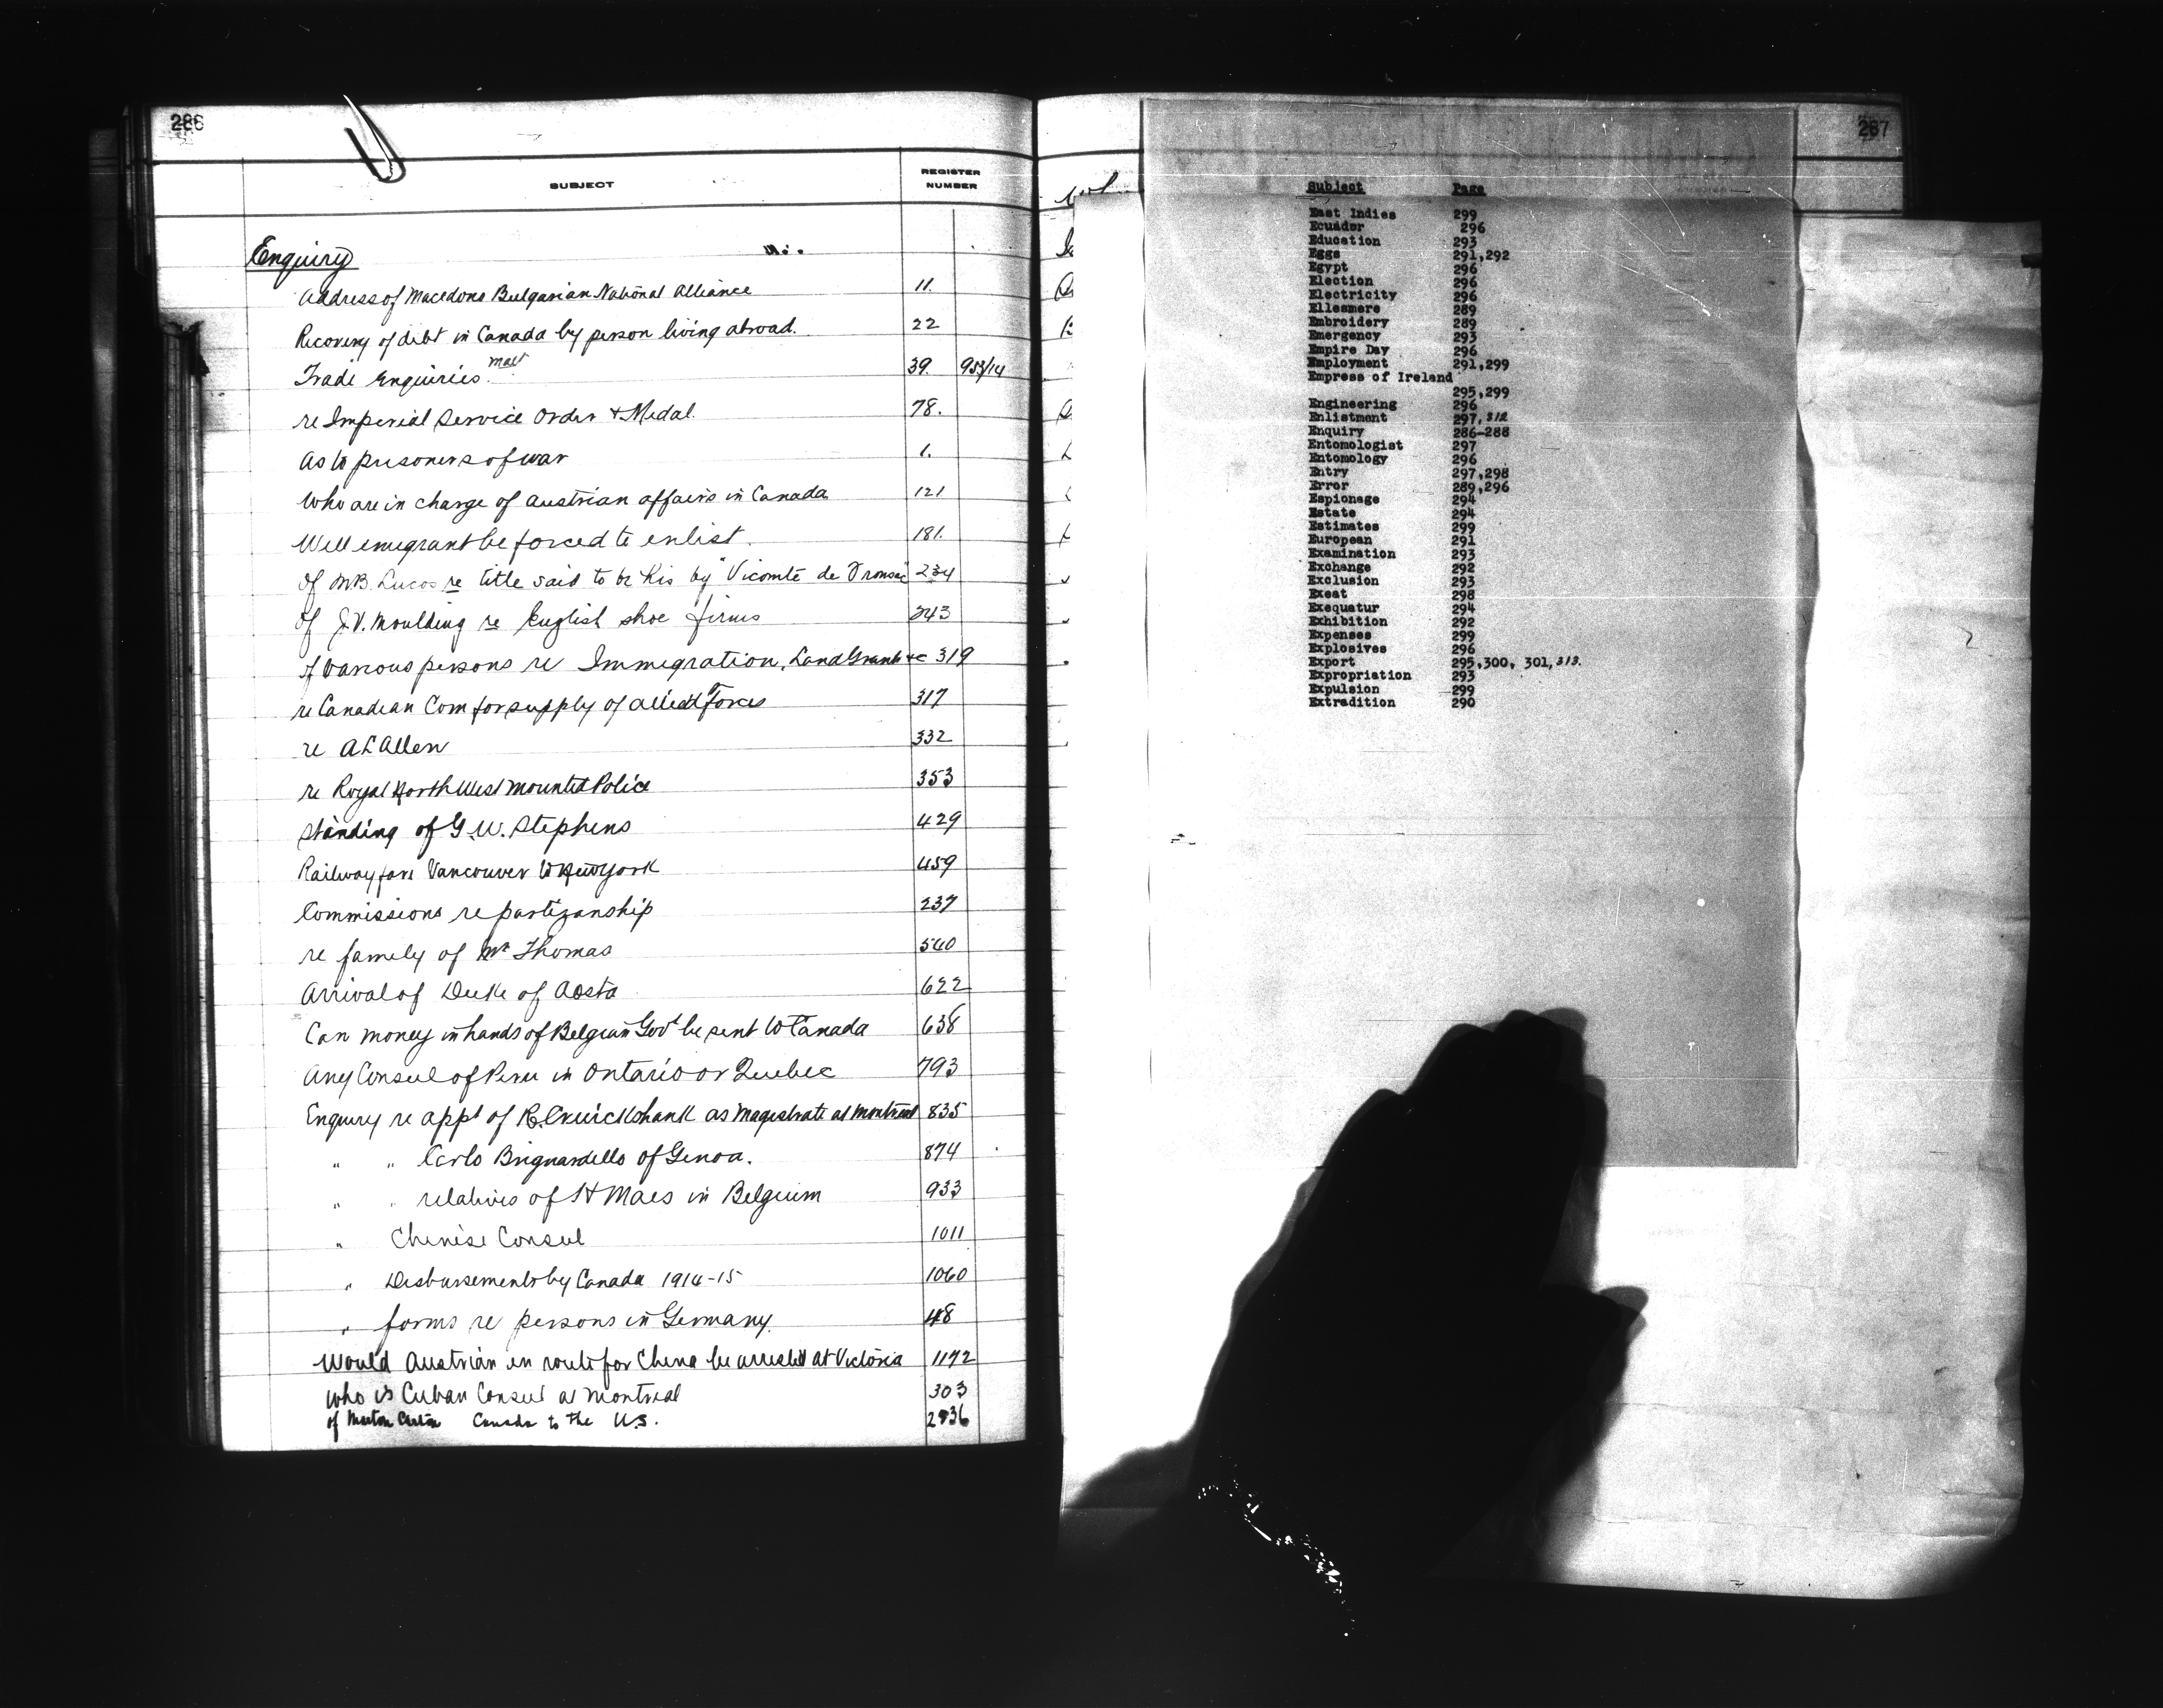 286
SUBJECT
REGISTER NUMBER
Enquiry
Address of Macedono Bulgarian National Alliance 11.
Recovery of debt in Canada by person living abroad. 22
Trade Enquiries 39. 953/14
re Imperial Service Order + Medal. 78.
As to prisoners of war 1.
Who are in charge of Austrian affairs in Canada 121
Will emigrant be forced to enlist. 181.
Of M.B. Lucas re title said to be his by "Vicomte de Fronsac" 234
Of J.V. Moulding re English shoe firms 243
of various persons re Immigration, Land Grants &c 319
re Canadian Com for supply of Allied Forces 317
re A L Allen 332
re Royal North West Mounted Police 353
Standing of G.W. Stephens 429
Railway fare Vancouver to New York 459
Commissions re partizanship 237
re family of Mr Thomas 540
Arrival of Duke of Aosta 622
Can money in hands of Belgian Govt be sent to Canada 638
Any Consul of Peru in Ontario or Quebec 793
Enquiry re appt of R. Cruickshank as Magistrate at Montreal 835
" " Carlo Brignardello of Genoa. 874
" " relatives of H Maes in Belgium 933
" Chinese Consul 1011
" Disbursements by Canada 1914-15 1060
" forms re persons in Germany. 48
Would Austrian en route for China be arrested at Victoria 1172
Who is Cuban Consul at Montreal 303
of Canada to the U.S. 2936
287
Subject Page
East Indies 299
Ecuador 296
Education 293
Eggs 291,292
Egypt 296
Election 296
Electricity 296
Ellesmere 289
Embroidery 289
Emergency 293
Empire Day 296
Employment 291,299
Empress of Ireland
295,299
Engineering 296
Enlistment 297,312
Enquiry 286-288
Entomologist 297
Entomology 296
Entry 297,298
Error 289,296
Espionage 294
Estate 294
Estimates 299
European 291
Examination 293
Exchange 292
Exclusion 293
Exeat 298
Exequatur 294
Exhibition 292
Expenses 299
Explosives 296
Export 295,300, 301,313.
Expropriation 293
Expulsion 299
Extradition 290